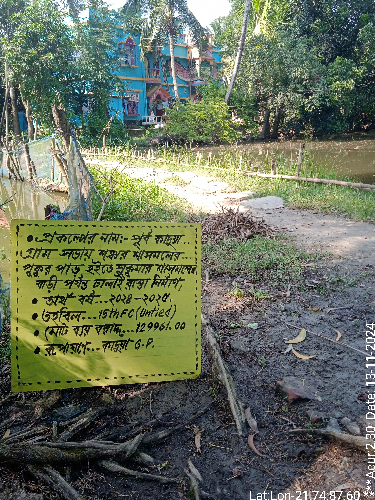 প্রকল্পের নাম:- পূর্ব কাদুয়া
গ্রাম সভায় শঙ্কর মাসান্তের
পুকুর পাড় হইতে সুকুমার
বাড়ী পর্যন্ত ঢালাই রাস্তা নির্মাণ,
অর্থ বর্ষ - ২০২৪ - ২০২৫,
তহবিল...15th FC (Untied)
মোট ব্যয় বরাদ্দ... 129961.00
G.P.
Lat:Lon-21.74,87.60
***Acur:2.30 Date: 13-11-2024